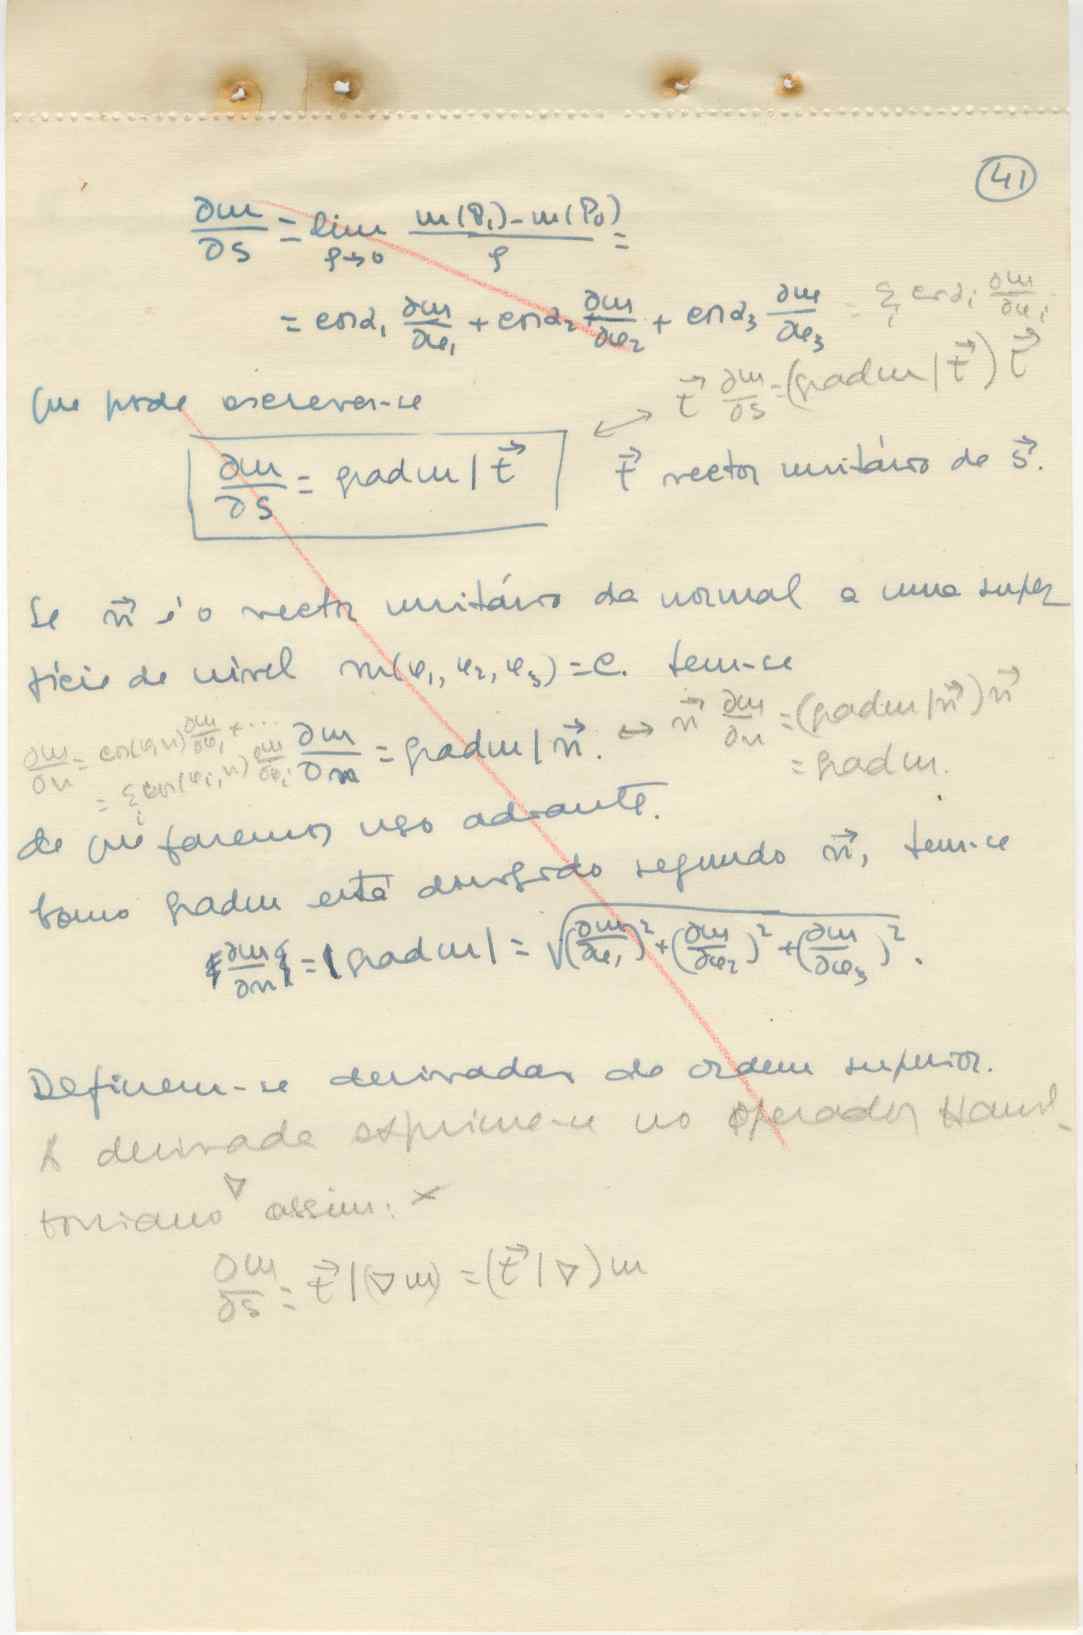 41
∂m/∂s = lim ρ→0 (m(P₁) - m(P₀))/ρ =
= cos α₁ ∂m/∂φ₁ + cos α₂ ∂m/∂φ₂ + cos α₃ ∂m/∂φ₃ = Σᵢ cos αᵢ ∂m/∂φᵢ
que pode escrever-se
t⃗ ∂m/∂s = (grad m | t⃗) t⃗
∂m/∂s = grad m | t⃗ t⃗ vector unitário de s⃗.
Se n⃗ é o vector unitário da normal a uma super
fície de nível m(φ₁, φ₂, φ₃) = C. tem-se
∂m/∂n = cos(φ₁n) ∂m/∂φ₁ + ...
= Σᵢ cos(φᵢ, n) ∂m/∂φᵢ
∂m/∂n = grad m | n⃗. ↔ n⃗ ∂m/∂n = (grad m | n⃗) n⃗
= grad m.
de que faremos uso adiante.
Como grad m está dirigido segundo n⃗, tem-se
|∂m/∂n| = |grad m| = √((∂m/∂φ₁)² + (∂m/∂φ₂)² + (∂m/∂φ₃)²).
Definem-se derivadas de ordem superior.
A derivada exprime-se no operador Hamil-
toniano ∇ assim: ×
∂m/∂s = t⃗ | (∇m) = (t⃗ | ∇) m